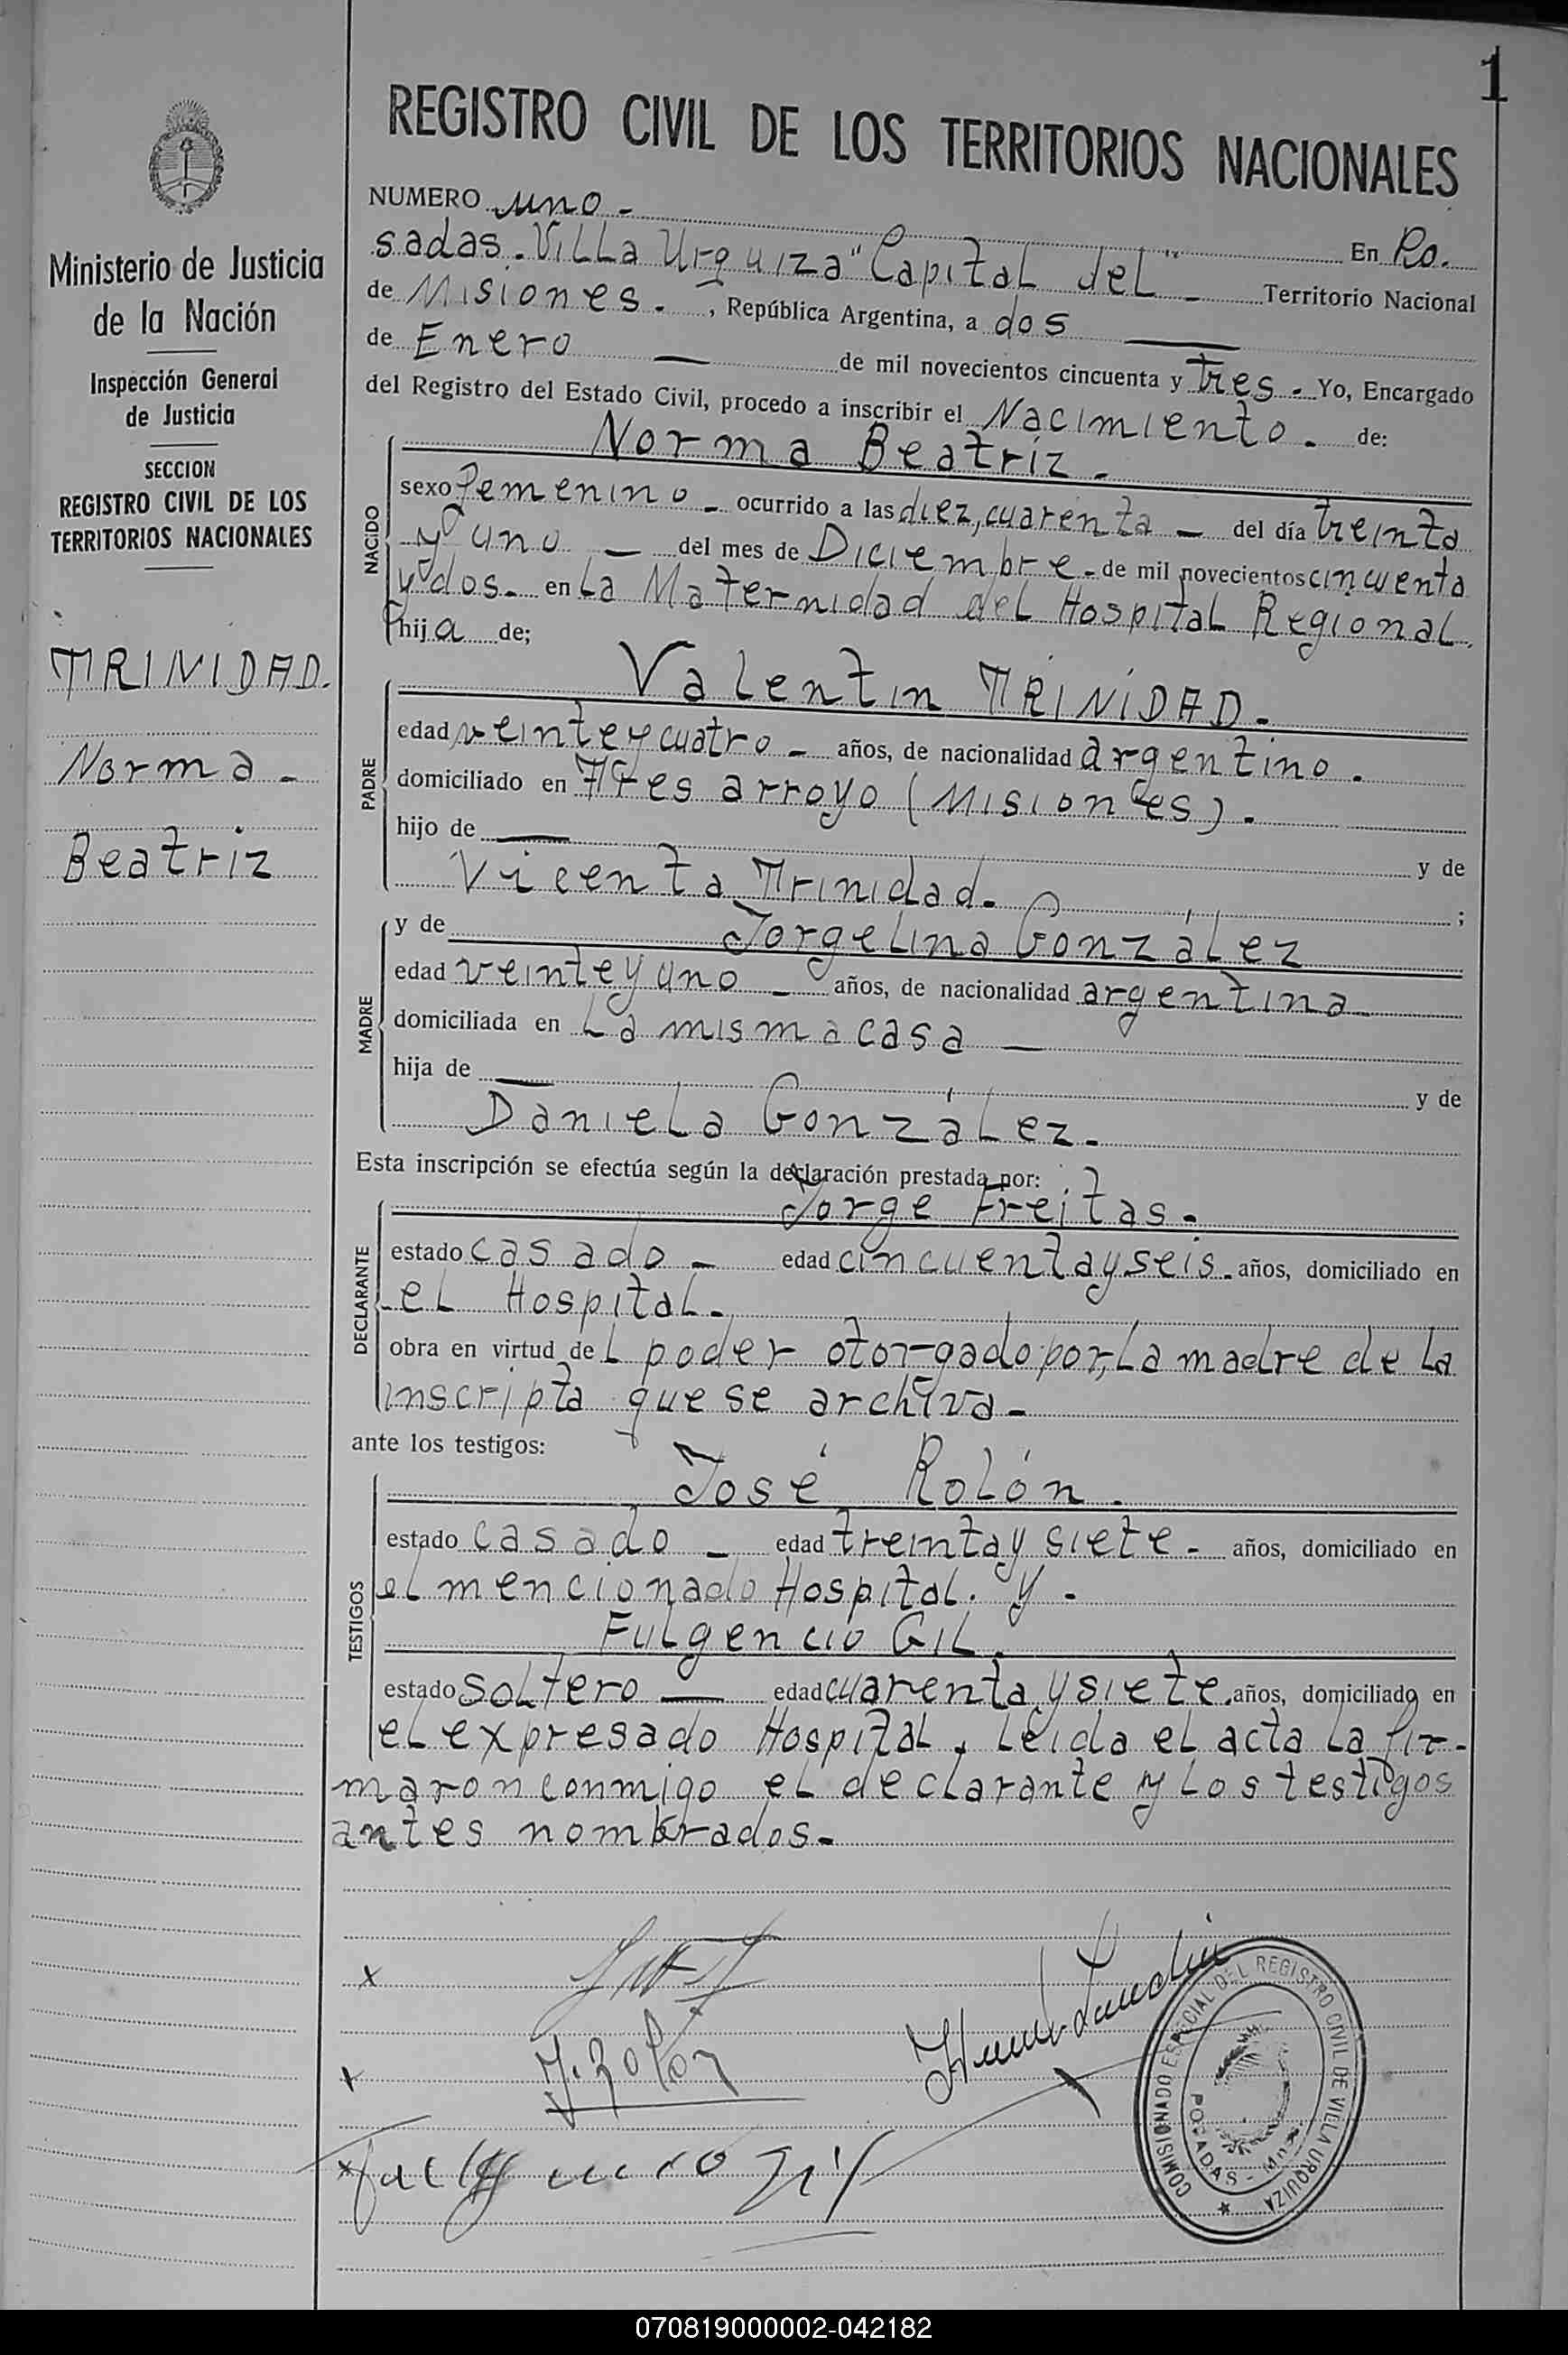 1
REGISTRO CIVIL DE LOS TERRITORIOS NACIONALES
Ministerio de Justicia
de la Nación
Inspección General
de Justicia
SECCION
REGISTRO CIVIL DE LOS
TERRITORIOS NACIONALES
TRINIDAD.
Norma -
Beatriz
NUMERO uno.- En Po.
sadas. Villa Urquiza" Capital del - Territorio Nacional
de Misiones. -, República Argentina, a dos
de Enero — de mil novecientos cincuenta y tres.- Yo, Encargado
del Registro del Estado Civil, procedo a inscribir el Nacimiento. - de:
NACIDO
Norma Beatriz.-
sexo femenino - ocurrido a las diez, cuarenta - del día treinta
y uno — del mes de Diciembre - de mil novecientos cincuenta
y dos.- en La Maternidad del Hospital Regional.
hija de;
PADRE
Valentin TRINIDAD.-
edad veinte y cuatro - años, de nacionalidad argentino.
domiciliado en Tres arroyo (Misiones).-
hijo de — y de
Vicenta Trinidad.- ;
MADRE
y de Jorgelina González
edad veinte y uno - años, de nacionalidad argentina
domiciliada en La misma casa —
hija de — y de
Daniela González.-
Esta inscripción se efectúa según la declaración prestada por:
DECLARANTE
Jorge Freitas.-
estado casado - edad cincuenta y seis.- años, domiciliado en
el Hospital.-
obra en virtud del poder otorgado por, La madre de la
inscripta que se archiva.-
ante los testigos:
TESTIGOS
José Rolón.
estado casado - edad treinta y siete.- años, domiciliado en
el mencionado Hospital. y -
Fulgencio Gil.
estado soltero — edad cuarenta y siete. años, domiciliado en
el expresado Hospital. Leída el acta la fir-
maron conmigo el declarante y los testigos
antes nombrados.-
x
x J. Rolon
x Fulgencio Gil
COMISIONADO ESPECIAL DEL REGISTRO CIVIL DE VILLA URQUIZA
POSADAS - Mnes.
070819000002-042182